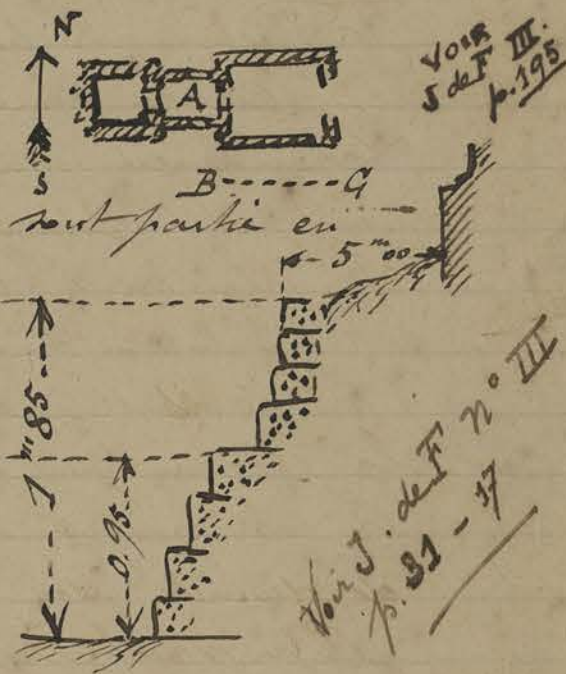 N
A
S
Voir
J de F III.
p. 195
B ------ G
sont partie en
5 m00
1 m 85
0.95
Voir J. de F n° III
p. 31 - 17